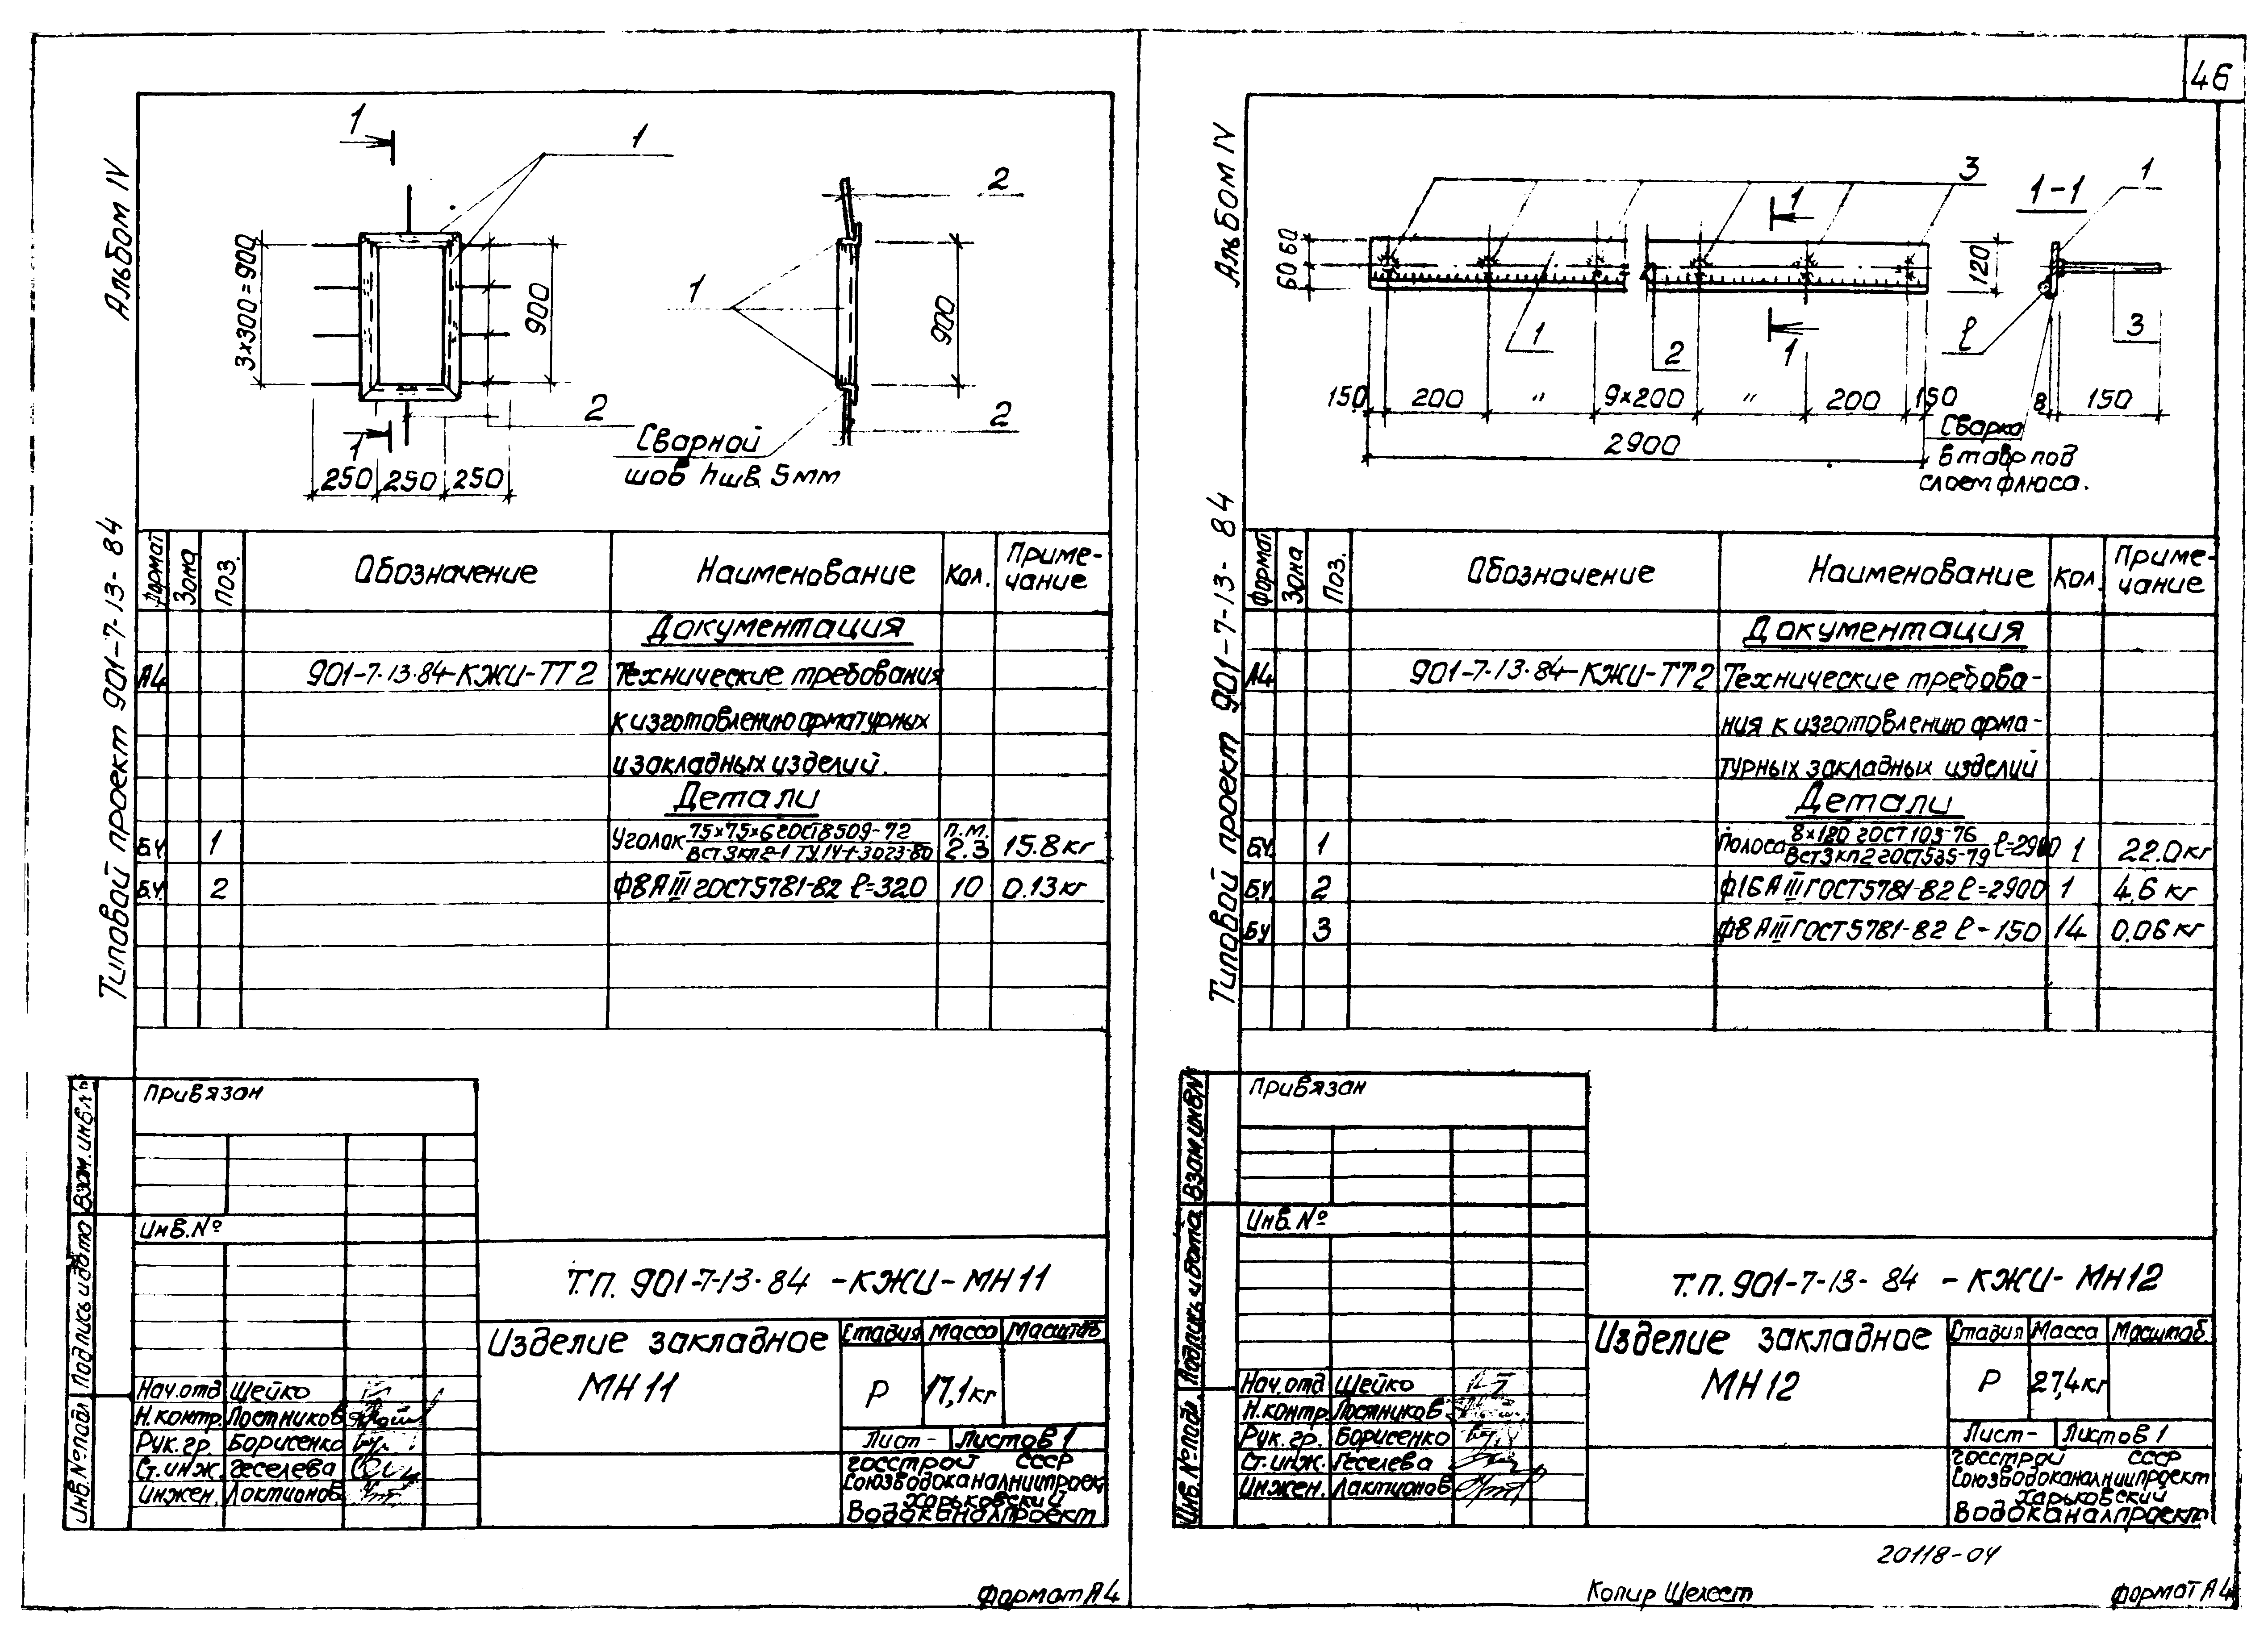 46
Альбом IV
Типовой проект 901-7-13-84
1
1
2
1
3×300=900
900
900
2
2
1
250 250 250
Сварной
шов hшв. 5мм
Формат Зона Поз. Обозначение Наименование Кол. Примечание
Документация
А4 901-7-13.84-КЖИ-ТТ2 Технические требования
к изготовлению арматурных
и закладных изделий.
Детали
Б.Ч. 1 Уголок 75×75×6 ГОСТ 8509-72 п.м. 15.8 кг
ВСт3кп2-1 ТУ14-1-3023-80 2.3
Б.Ч. 2 ф8АIII ГОСТ 5781-82 ℓ=320 10 0.13 кг
Привязан
Инв.№
Взам.инв.№
Подпись и дата
Инв.№ подл
Т.П. 901-7-13-84 -КЖИ-МН11
Изделие закладное
МН11
Стадия Масса Масштаб
Р 17,1кг
Лист - Листов 1
Нач.отд Шейко
Н.контр. Постников
Рук.гр. Борисенко
Ст.инж. Геселева
Инжен. Лактионов
Госстрой СССР
Союзводоканалниипроект
Харьковский
Водоканалпроект
Формат А4
Альбом IV
Типовой проект 901-7-13-84
3
1-1
1
1
60 60
120
1
2
1
ℓ
3
150 200 " 9×200 " 200 150
8 150
2900
Сварка
в тавр под
слоем флюса.
Формат Зона Поз. Обозначение Наименование Кол. Примечание
Документация
А4 901-7-13.84-КЖИ-ТТ2 Технические требова-
ния к изготовлению арма-
турных закладных изделий
Детали
Б.Ч. 1 Полоса 8×120 ГОСТ 103-76 ℓ=2900 1 22.0кг
ВСт3кп2 ГОСТ 535-79
Б.Ч. 2 ф16АIII ГОСТ 5781-82 ℓ=2900 1 4,6 кг
Б.Ч. 3 ф8АIII ГОСТ 5781-82 ℓ-150 14 0.06 кг
Привязан
Инв.№
Взам.инв.№
Подпись и дата
Инв.№ подл.
Т.П. 901-7-13-84 -КЖИ-МН12
Изделие закладное
МН12
Стадия Масса Масштаб
Р 27,4кг
Лист- Листов 1
Нач.отд Шейко
Н.контр. Постников
Рук.гр. Борисенко
Ст.инж. Геселева
Инжен. Лактионов
Госстрой СССР
Союзводоканалниипроект
Харьковский
Водоканалпроект
20118-04
Копир Шелест
Формат А4